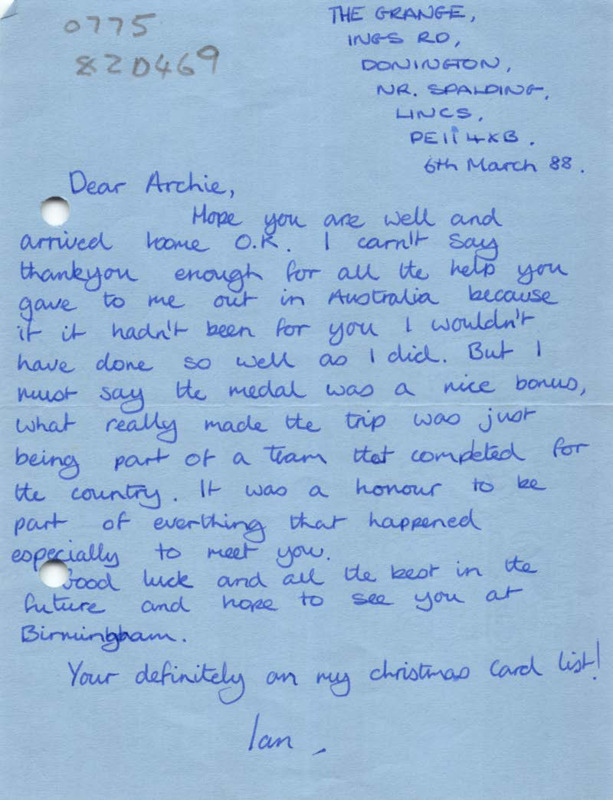 0775
820469
THE GRANGE,
INGS RD,
DONINGTON,
NR. SPALDING,
LINCS,
PE11 4XB.
6th March 88.
Dear Archie,
Hope you are well and
arrived home O.K. I carn't say
thankyou enough for all the help you
gave to me out in Australia because
if it hadn't been for you I wouldn't
have done so well as I did. But I
must say the medal was a nice bonus,
what really made the trip was just
being part of a team that competed for
the country. It was a honour to be
part of everthing that happened
especially to meet you.
Good luck and all the best in the
future and hope to see you at
Birmingham.
Your definitely on my christmas card list!
Ian.